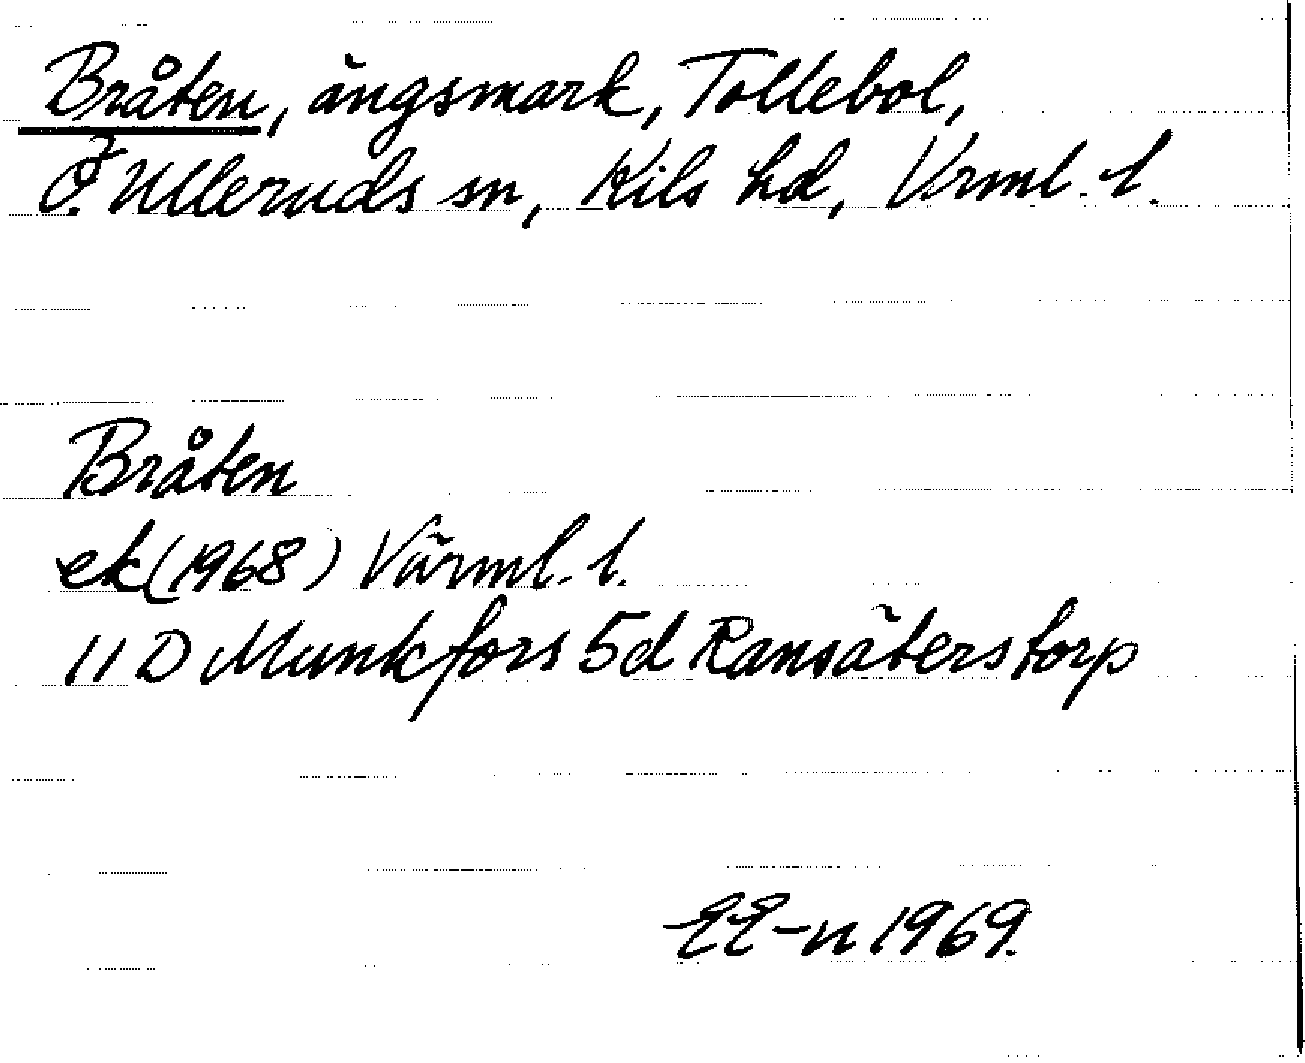 Bråten, ängsmark, Tollebol,
Ö. Ulleruds sn, Kils hd, Vrml. l.
Bråten
ek (1968) Värml. l.
11 D Munkfors 5d Ransäterstorp
EE-n 1969.